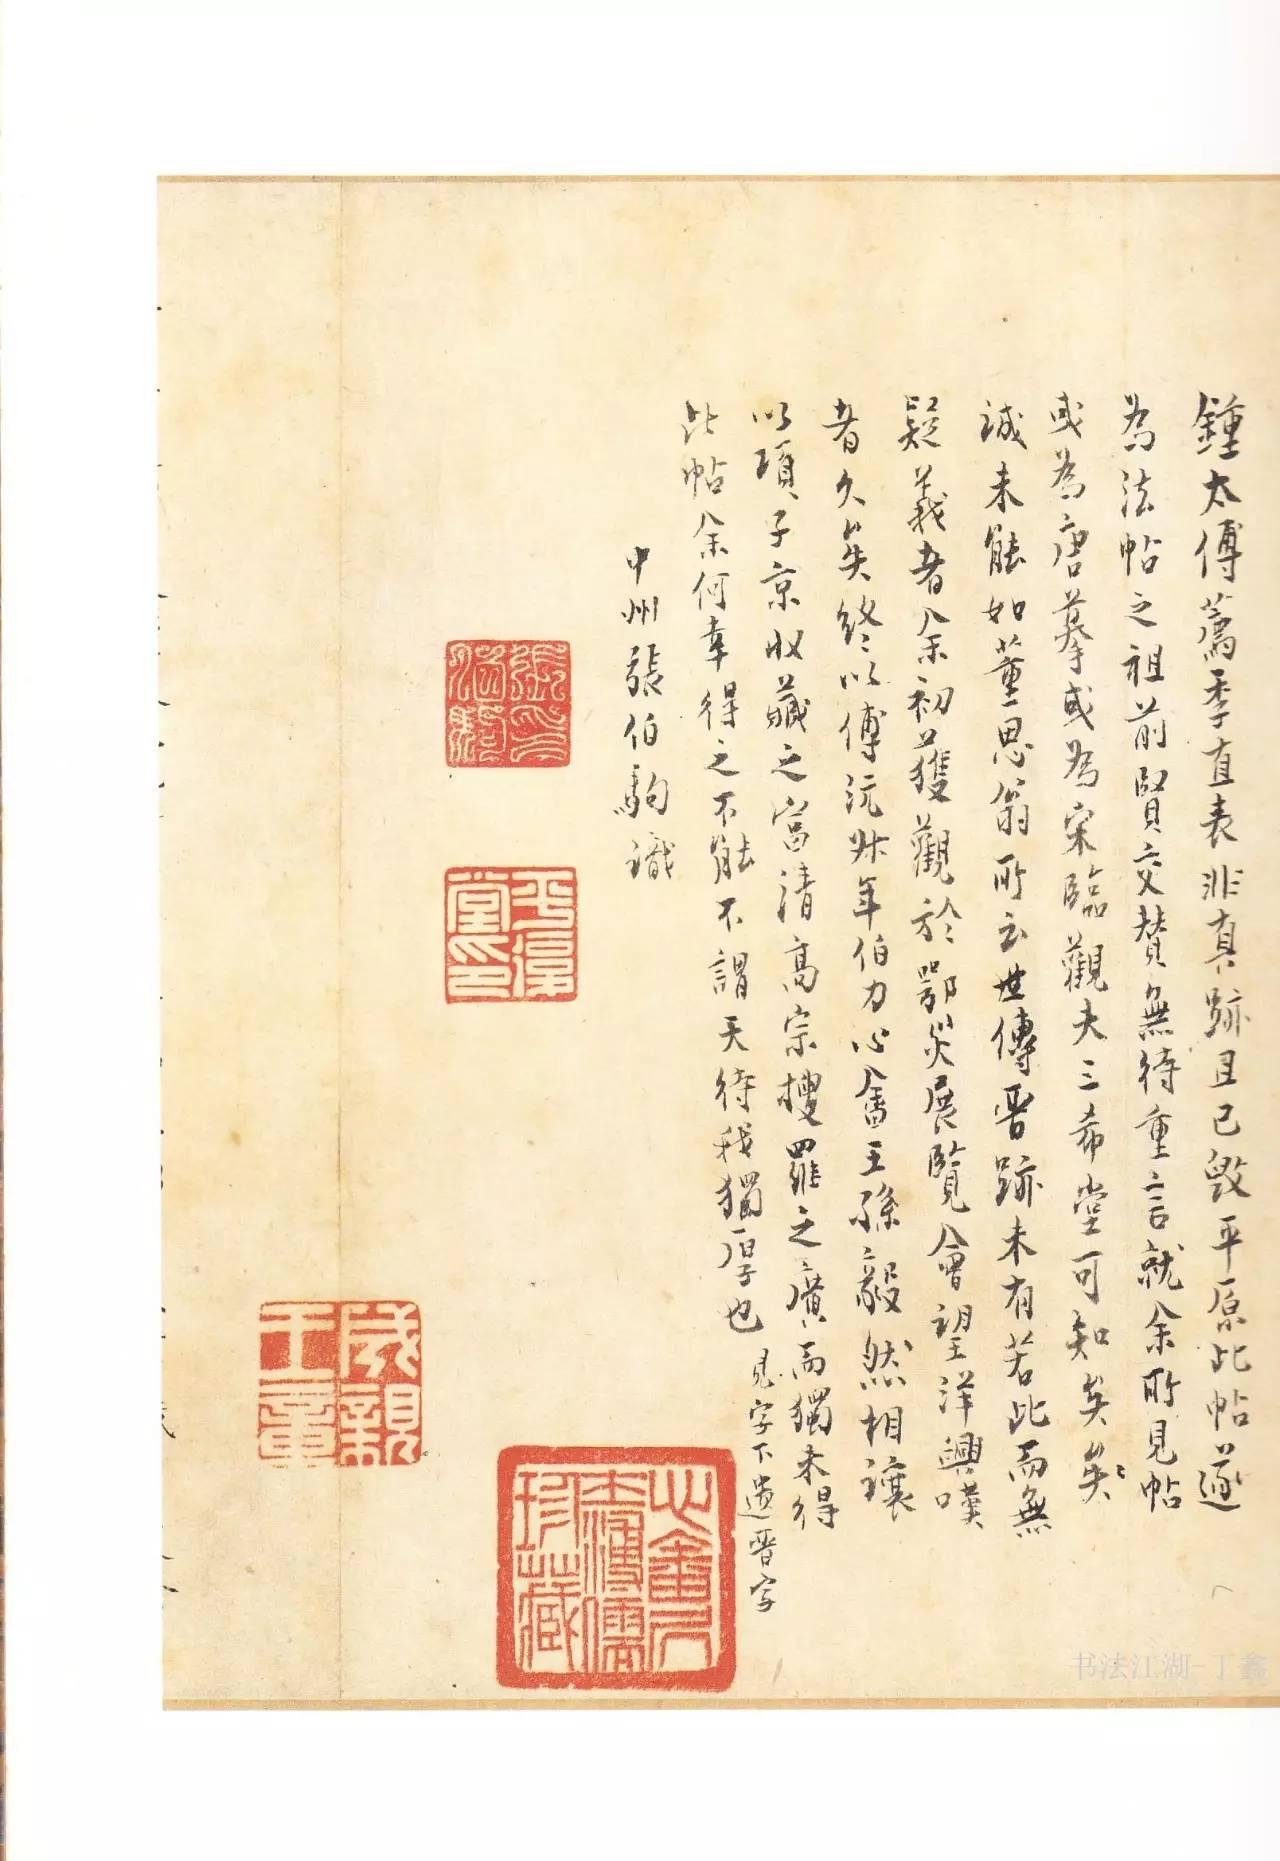 鍾太傅薦季直表非真跡且已毀平原此帖遂
為法帖之祖前賢交贊無待重言就余所見帖
或為唐摹或為宋臨觀夫三希堂可知矣矣
誠未能如董思翁所云世傳晉跡未有若此而無
疑義者余初獲觀於鄂災展覽會望洋興嘆
者久矣終以傅沅叔年伯力心畬王孫毅然相讓
以項子京收藏之富清高宗搜羅之廣而獨未得
此帖余何幸得之不能不謂天待我獨厚也 見字下遺晉字
中州張伯駒識
張伯駒
平復堂印
心畬
珍藏
成親王章
书法江湖-丁鑫